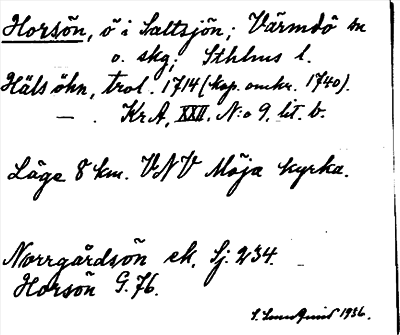 Horsön, ö i Saltsjön; Värmdö sn
o. skg; Sthlms l.
Häls öhn, trol. 1714 (kop. omkr. 1740).
— . KrA, XXII. N:o 9, lit. b.
Läge 8 km. VNV Möja kyrka.
Norrgårdsön ek. Sj. 234.
Horsön G. 76.
1936.